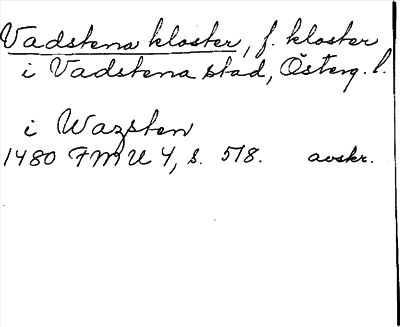 Vadstena kloster, f. kloster
i Vadstena stad, Österg. l.
i Wazsten
1480 FMU 4, s. 518. avskr.